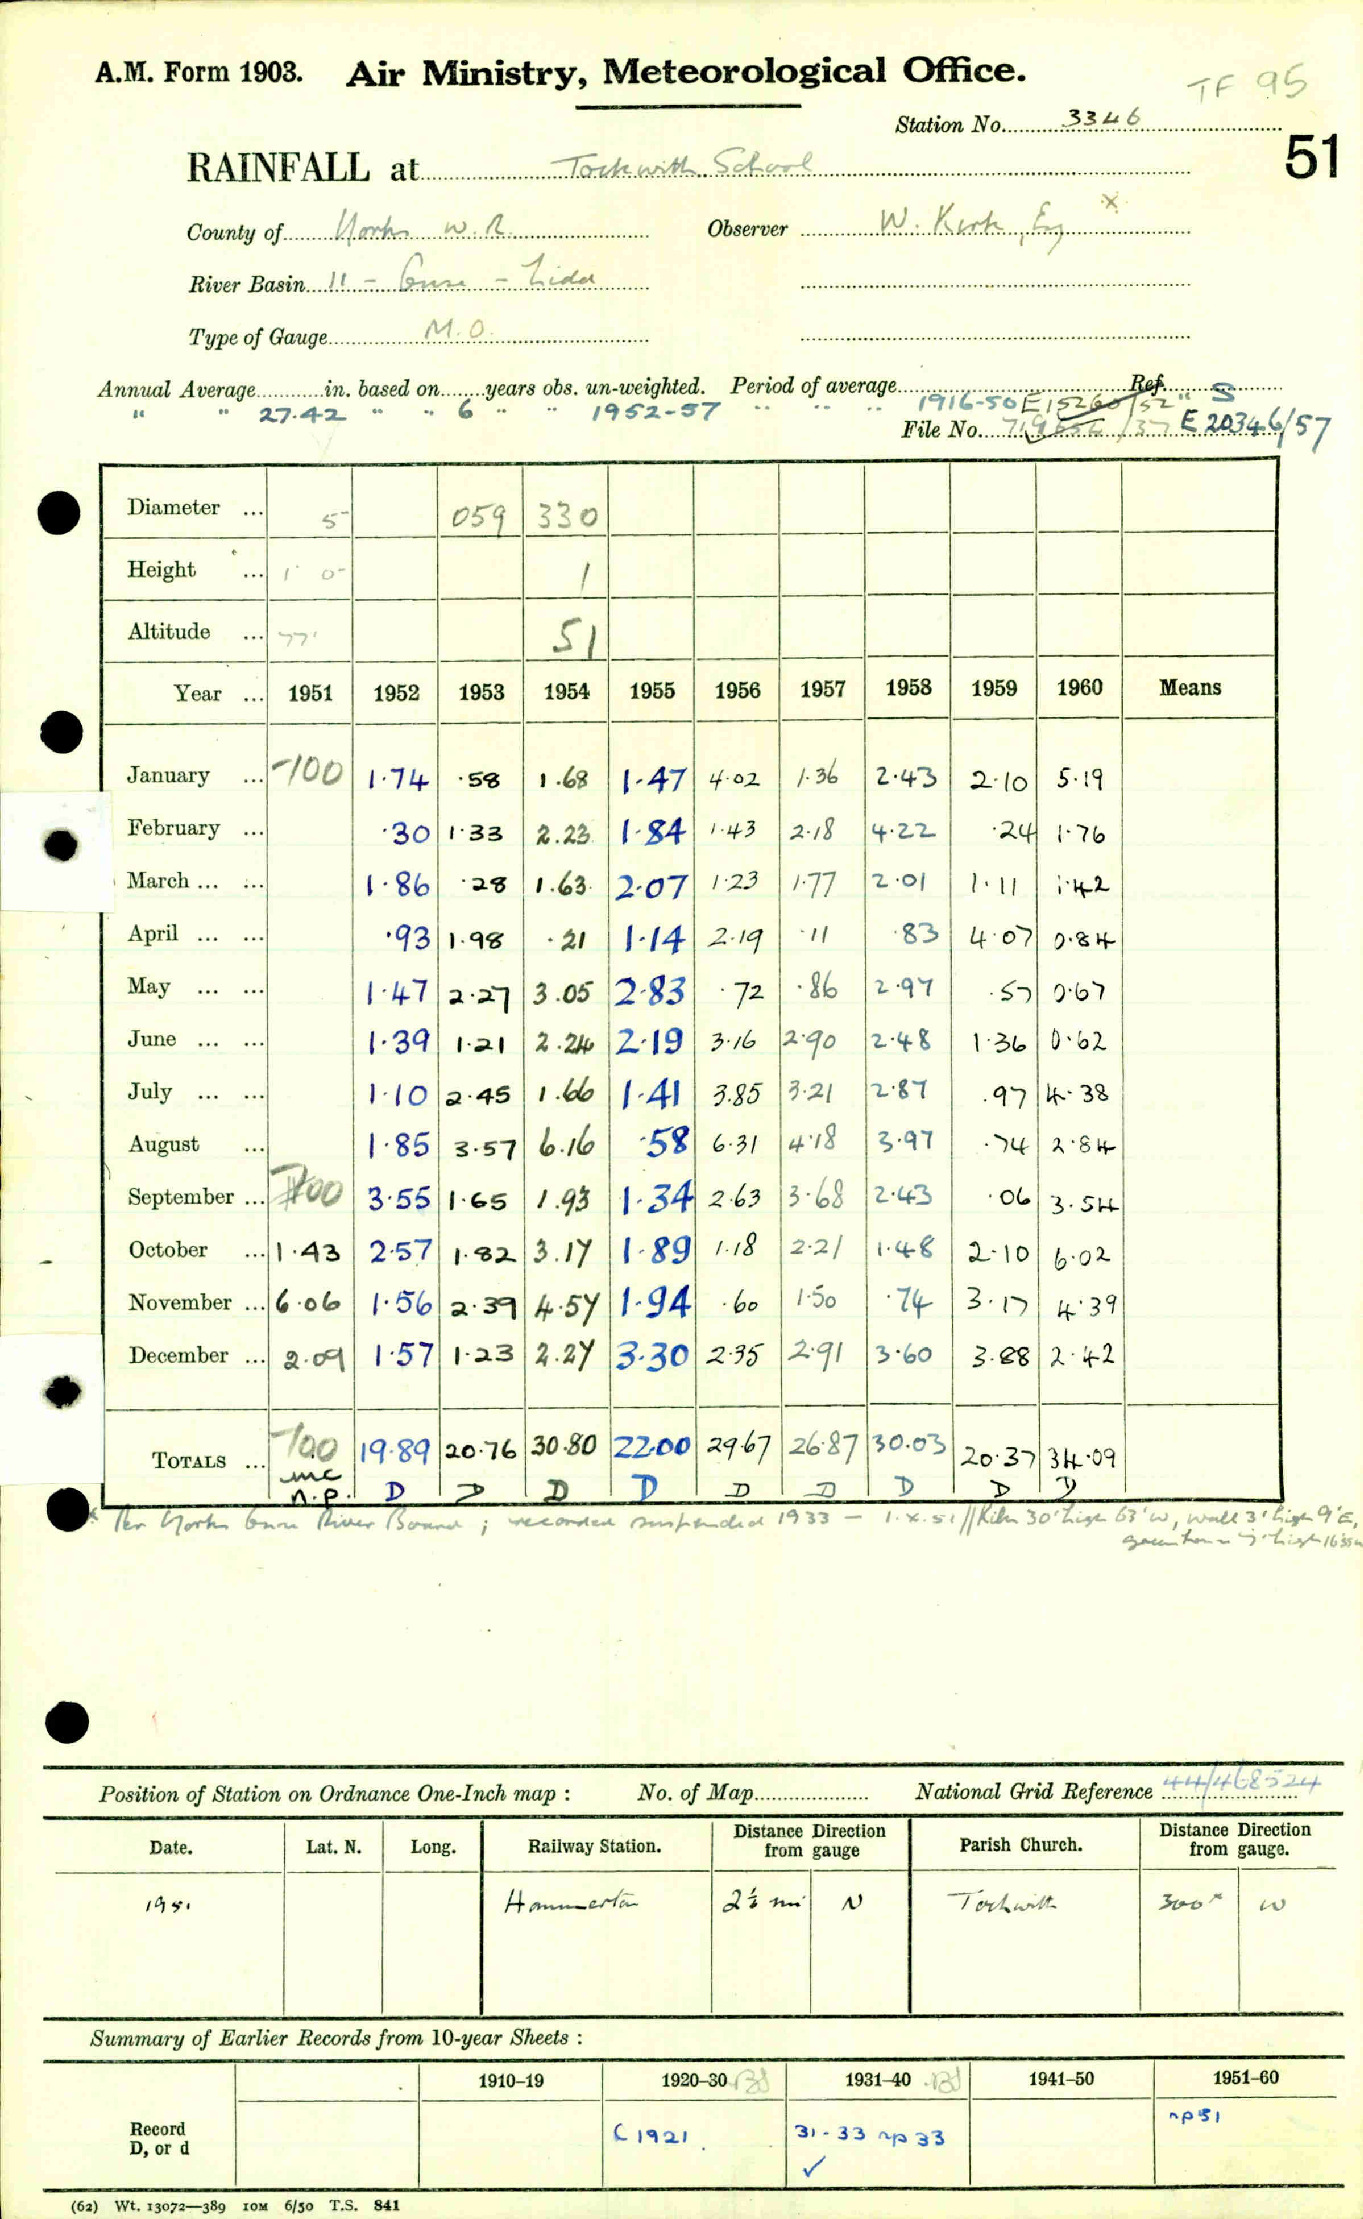 A.M. Form 1903. Air Ministry, Meteorological Office. TF 95
Station No. 3346
51
RAINFALL at Tockwith School
County of Yorks W.R. Observer W. Kirk, Esq x
River Basin 11 - Ouse - Nidd
Type of Gauge M.O.
Annual Average in. based on years obs. un-weighted. Period of average Ref.
" " 27.42 " " 6 " " 1952-57 " " " 1916-50 E15260/52 " S
File No. /37 E 20346/57
Diameter ... 5 059 330
Height ... 1' 0" 1
Altitude ... 77' 51
Year ... 1951 1952 1953 1954 1955 1956 1957 1958 1959 1960 Means
January ... -100 1.74 .58 1.68 1.47 4.02 1.36 2.43 2.10 5.19
February ... .30 1.33 2.23 1.84 1.43 2.18 4.22 .24 1.76
March ... ... 1.86 .28 1.63 2.07 1.23 1.77 2.01 1.11 1.42
April ... ... .93 1.98 .21 1.14 2.19 .11 .83 4.07 0.84
May ... ... 1.47 2.27 3.05 2.83 .72 .86 2.97 .57 0.67
June ... ... 1.39 1.21 2.24 2.19 3.16 2.90 2.48 1.36 0.62
July ... ... 1.10 2.45 1.66 1.41 3.85 3.21 2.87 .97 4.38
August ... 1.85 3.57 6.16 .58 6.31 4.18 3.97 .74 2.84
September ... -100 3.55 1.65 1.93 1.34 2.63 3.68 2.43 .06 3.54
October ... 1.43 2.57 1.82 3.17 1.89 1.18 2.21 1.48 2.10 6.02
November ... 6.06 1.56 2.39 4.57 1.94 .60 1.50 .74 3.17 4.39
December ... 2.09 1.57 1.23 2.27 3.30 2.35 2.91 3.60 3.88 2.42
TOTALS ... -100 19.89 20.76 30.80 22.00 29.67 26.87 30.03 20.37 34.09
inc
n.p. D D D D D D D D D
x Per Yorks Ouse River Board ; recorded suspended 1933 - 1.x.51 // Kiln 30' high 63' W, wall 3' high 9' E,
high 16'
Position of Station on Ordnance One-Inch map : No. of Map National Grid Reference 44/468524
Date. Lat. N. Long. Railway Station. Distance Direction from gauge Parish Church. Distance Direction from gauge.
1951 Hammerton 2½ mi N Tockwith 300x W
Summary of Earlier Records from 10-year Sheets :
1910–19 1920–30 Bd 1931–40 Bd 1941–50 1951–60
Record
D, or d
C 1921 31-33 np 33 np 51
✓
(62) Wt. 13072—389 10M 6/50 T.S. 841